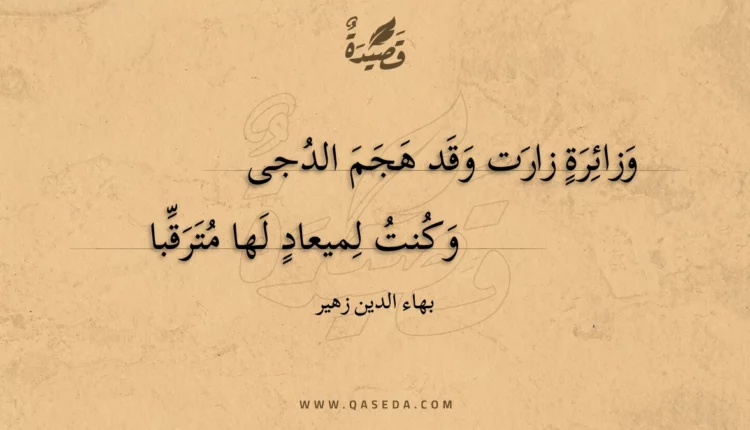 قَصِيْدَةٌ
وَزائِرَةٍ زارَت وَقَد هَجَمَ الدُجى
وَكُنتُ لِميعادٍ لَها مُتَرَقِّبا
بهاء الدين زهير
WWW.QASEDA.COM